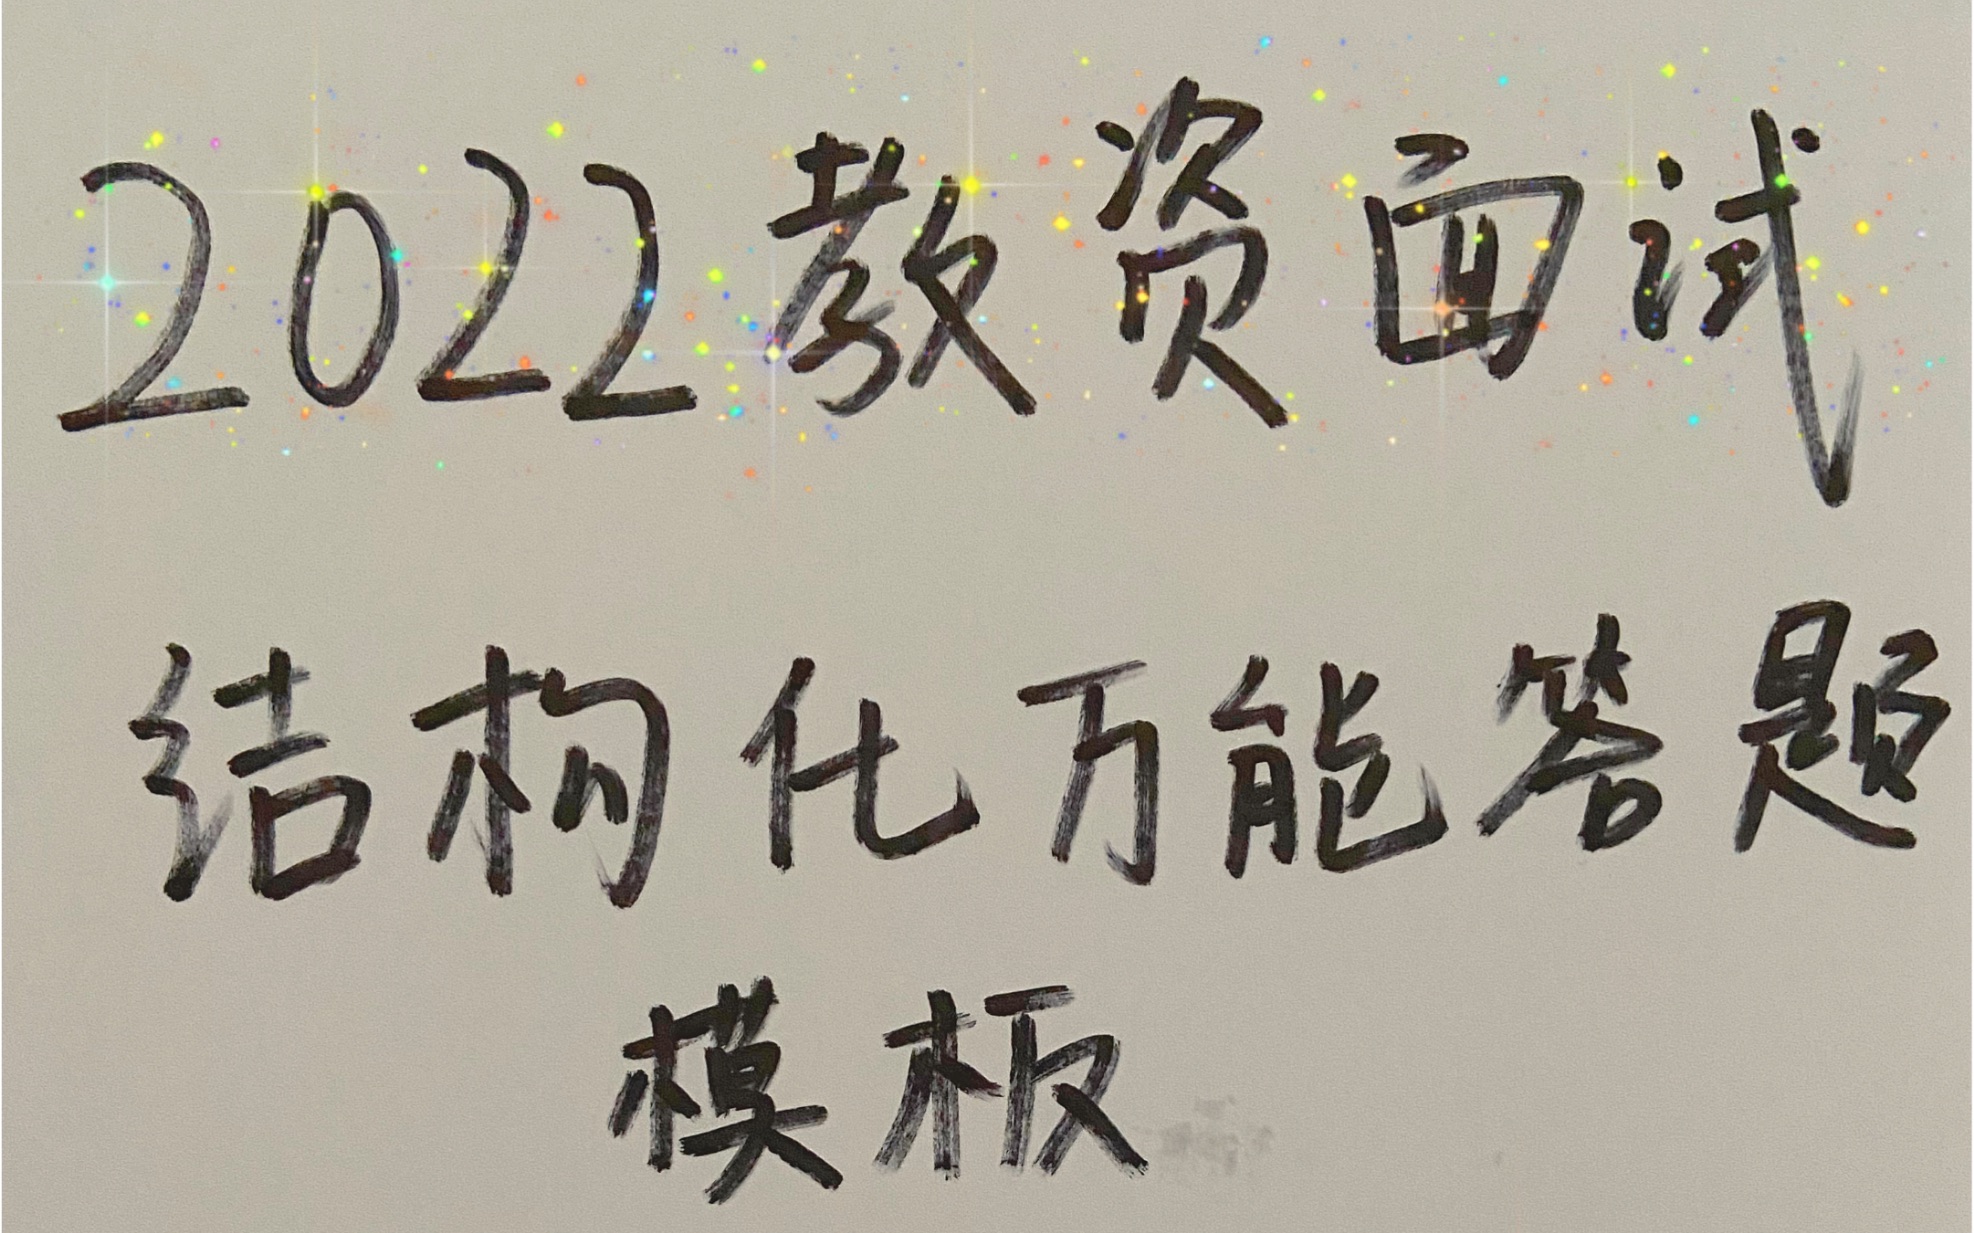 2022教资面试
结构化万能答题
模板